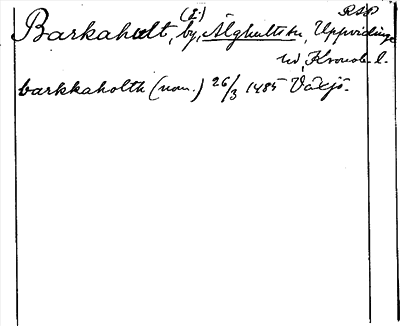 RAP
Barkahult, (I:) by, Älghults sn, Uppvidinge
hd, Kronob. l.
barkkaholth (nom.) 26/3 1485 Växjö.